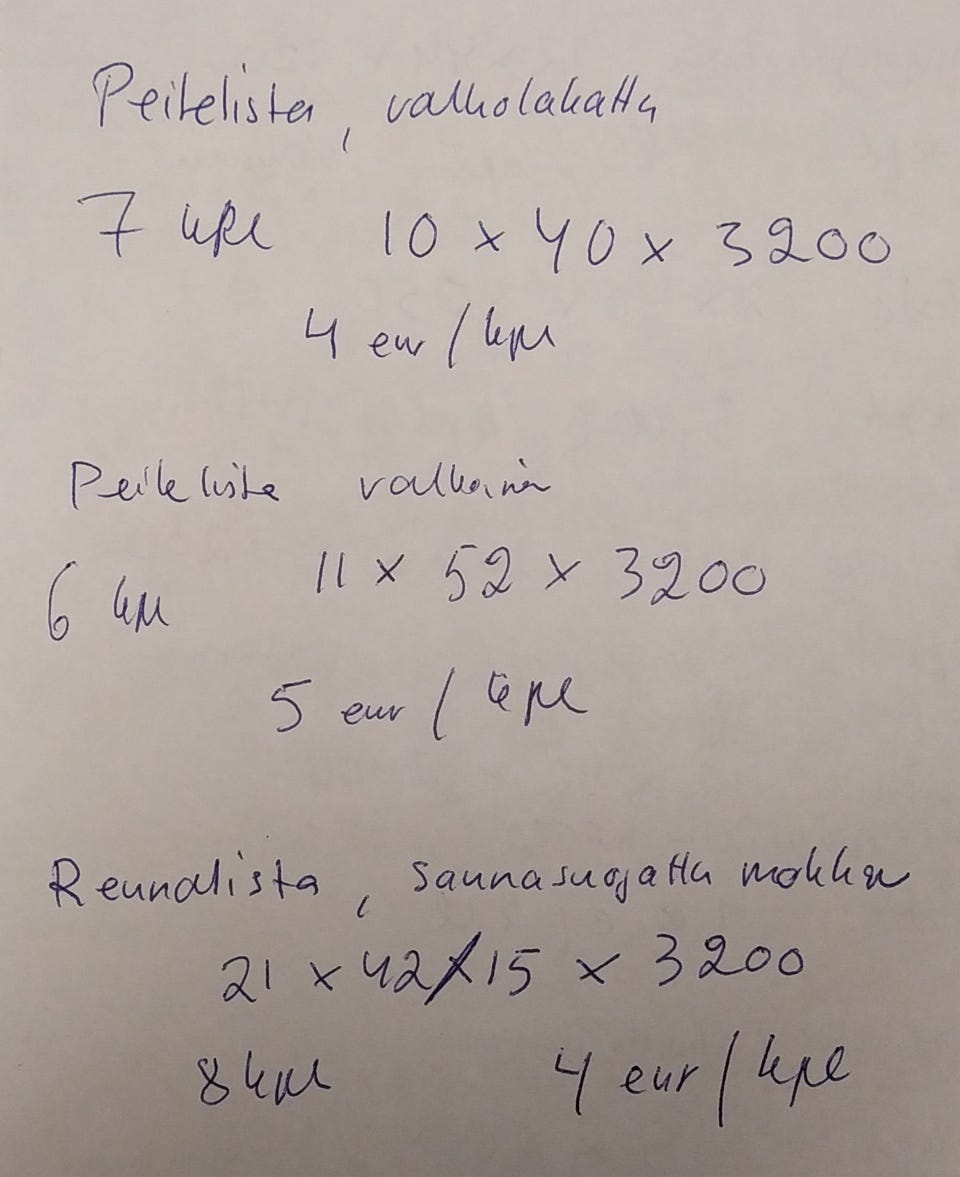 Peitelista, valkolakattu
7 kpl 10 x 40 x 3200
4 eur / kpl
Peitelista valkoinen
6 kpl 11 x 52 x 3200
5 eur / kpl
Reunalista, saunasuojattu mokka
21 x 42/15 x 3200
8 kpl 4 eur / kpl